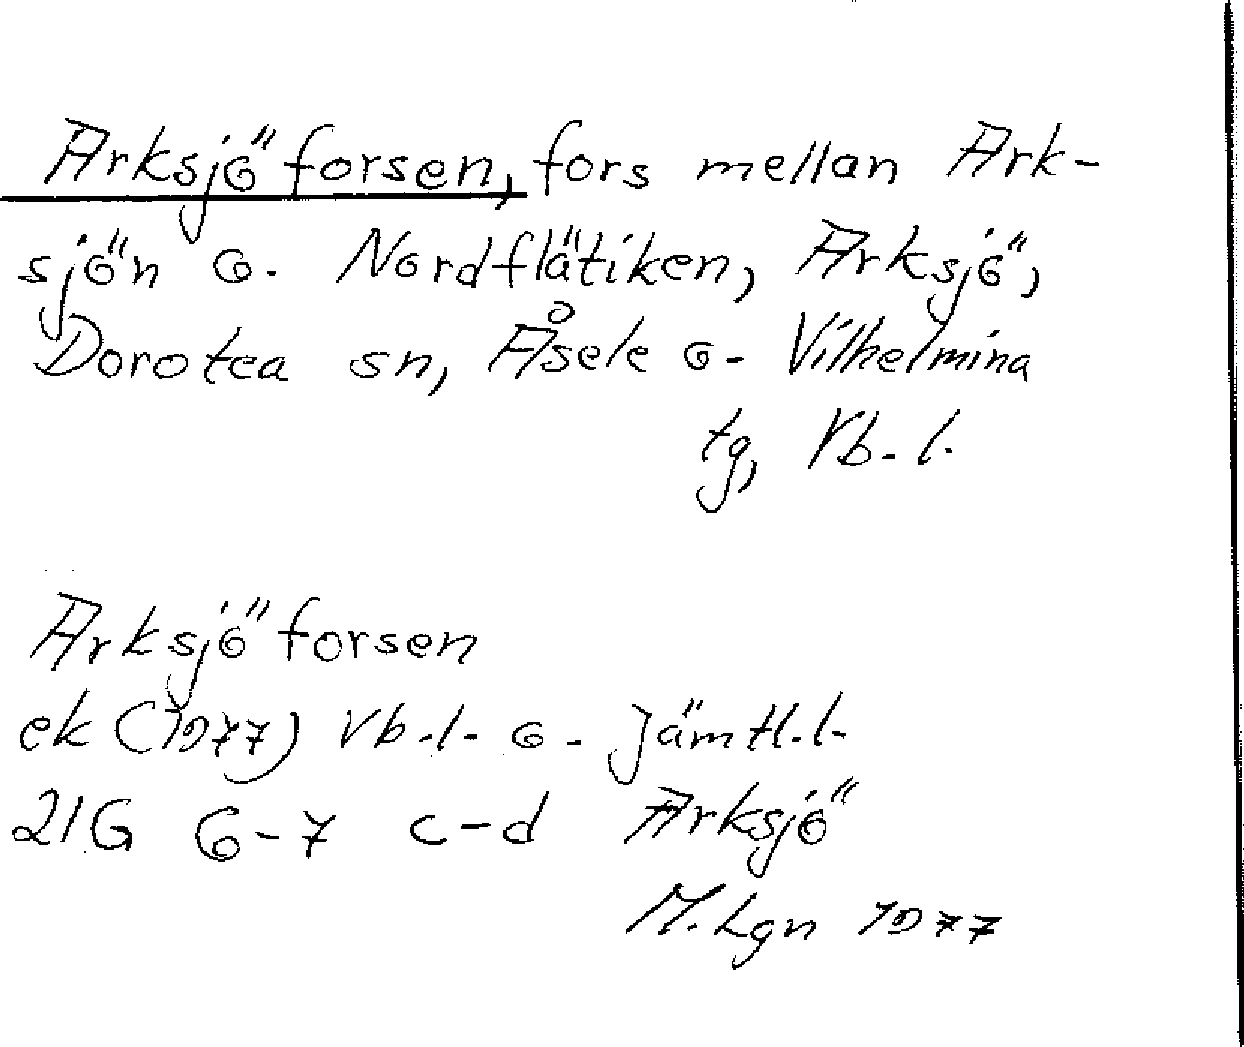 Arksjöforsen, fors mellan Ark-
sjön o. Nordflätiken, Arksjö,
Dorotea sn, Åsele o. Vilhelmina
tg, Vb. l.
Arksjöforsen
ek (1977) Vb. l. o. Jämtl. l.
21G 6-7 c-d Arksjö
M. Lgn 1977